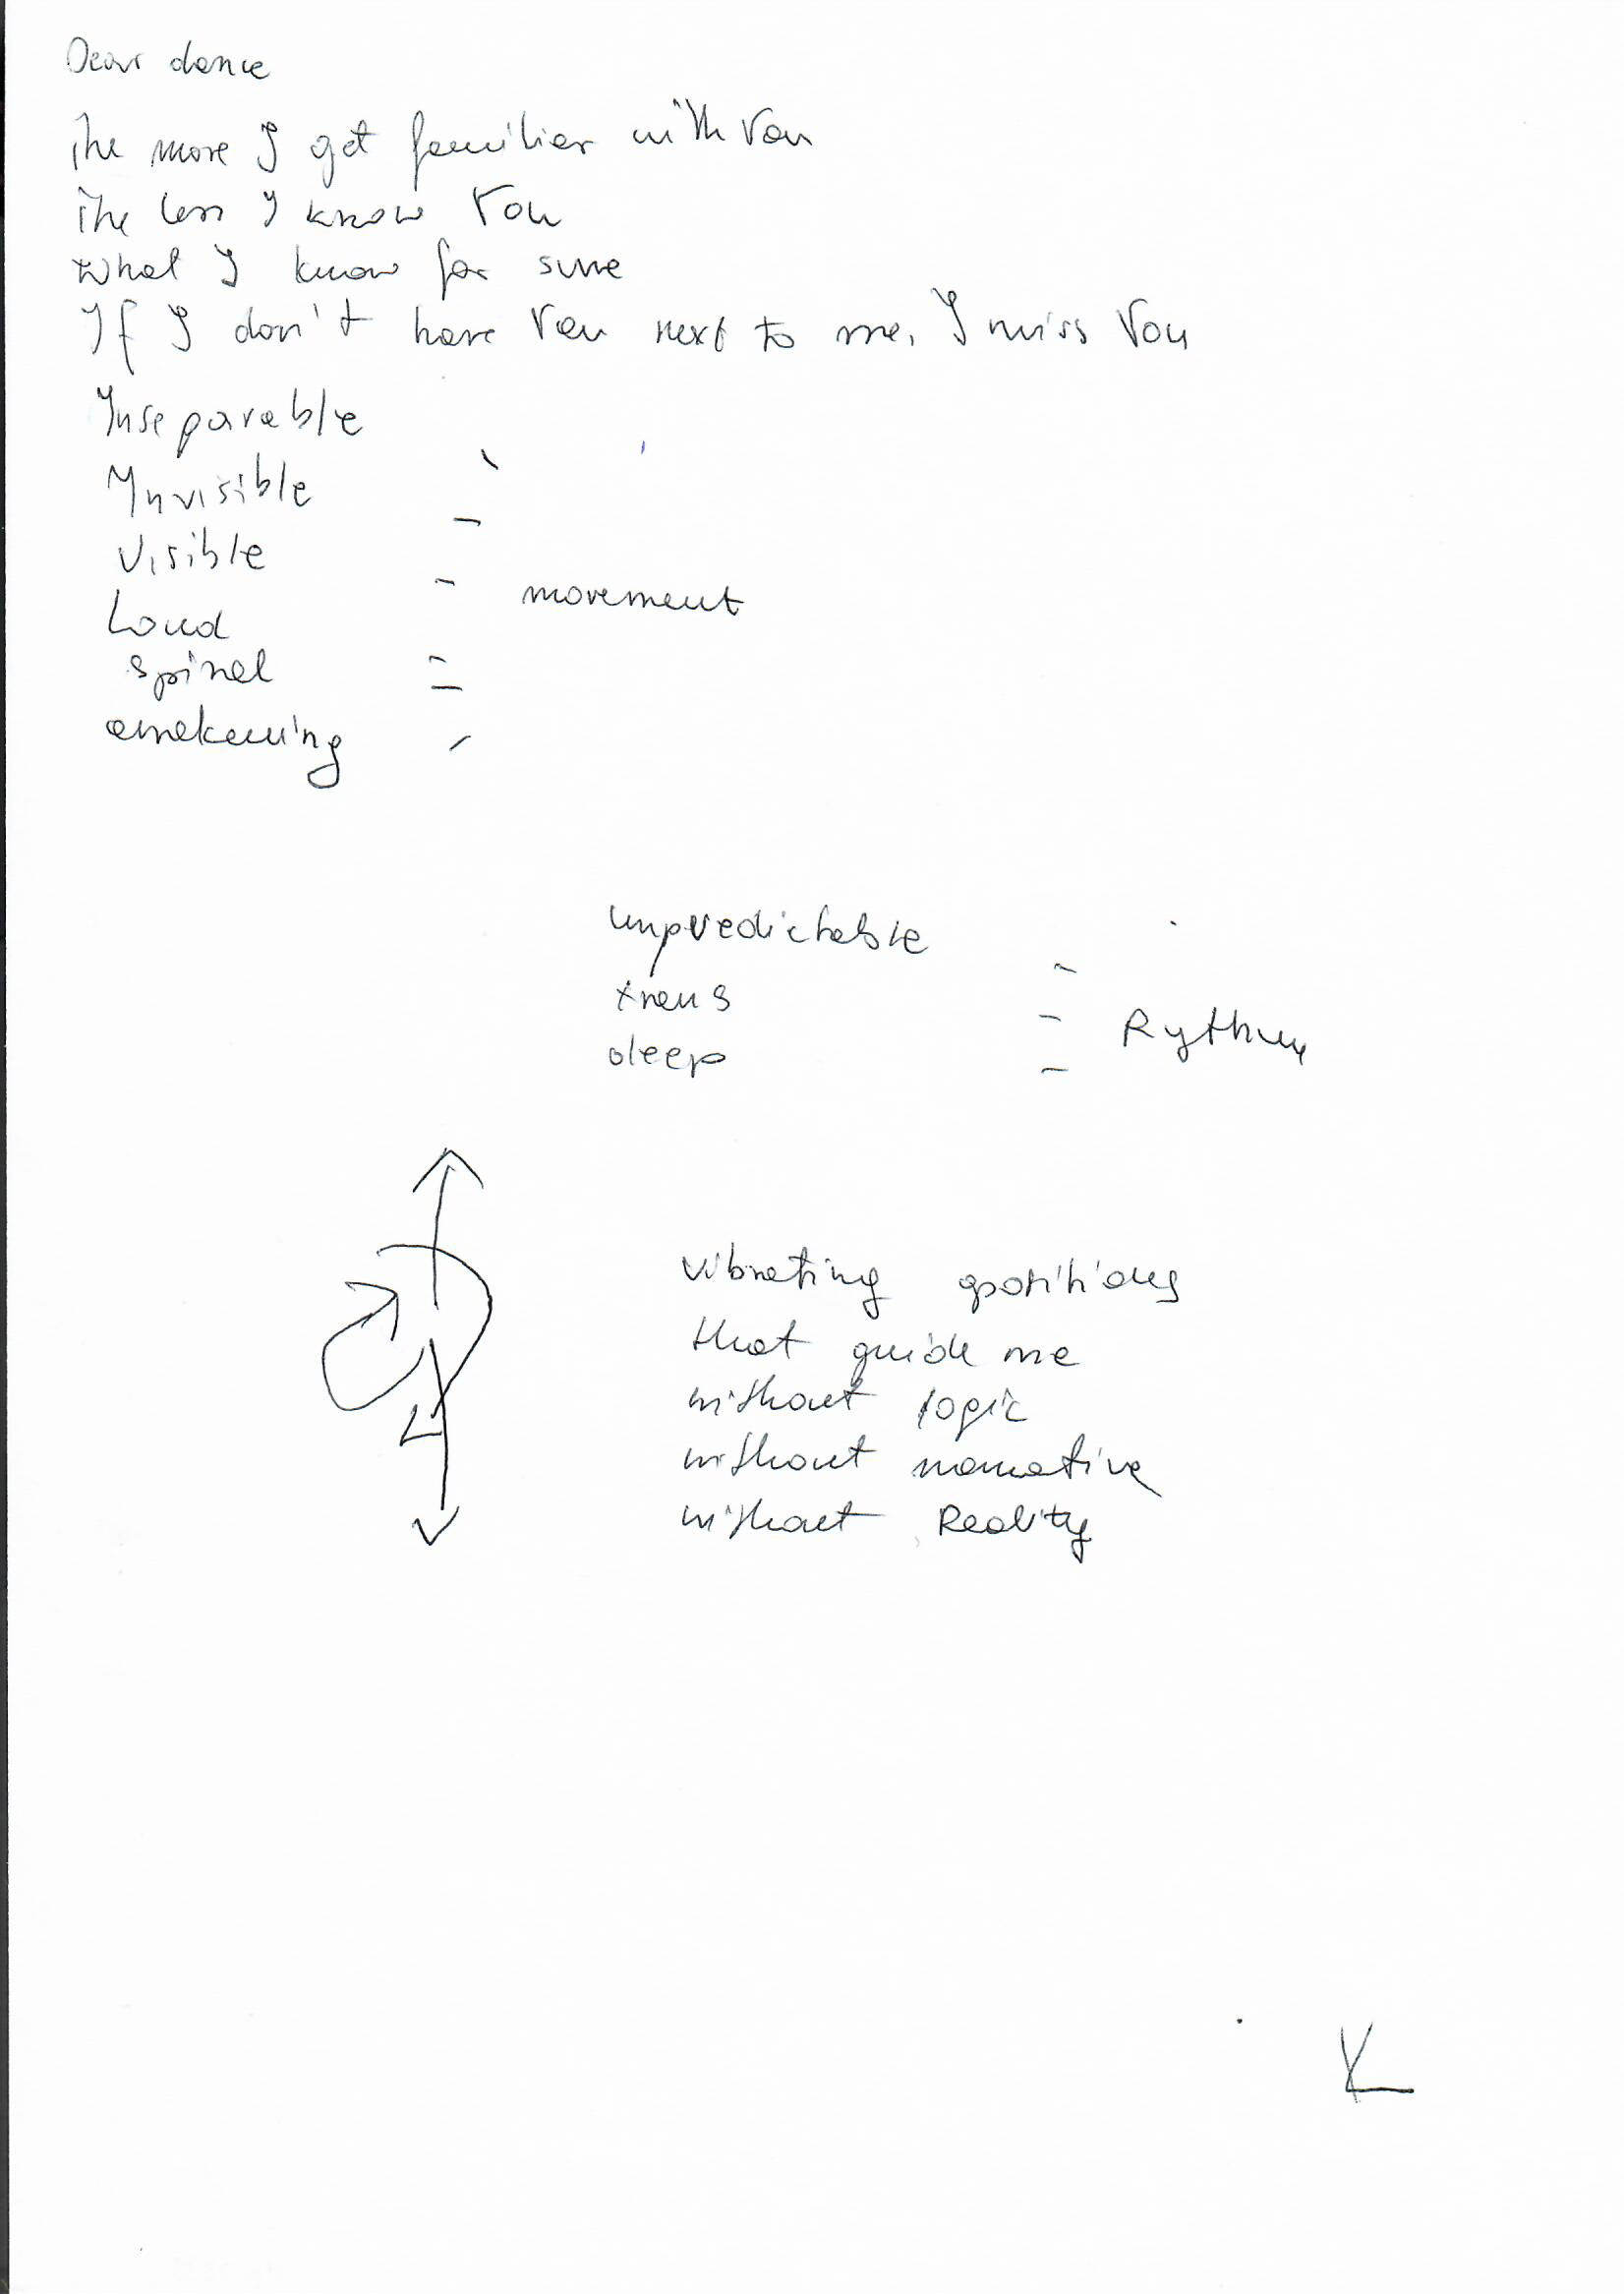 Dear dance
The more I get familiar with You
The less I know You
What I know for sure
If I don't have You next to me, I miss You
Inseparable
Invisible
Visible
Loud
spinal
awakening
movement
unpredictable
trans
deep
Rythm
vibrating
that guide me
without logic
without narrative
without Reality